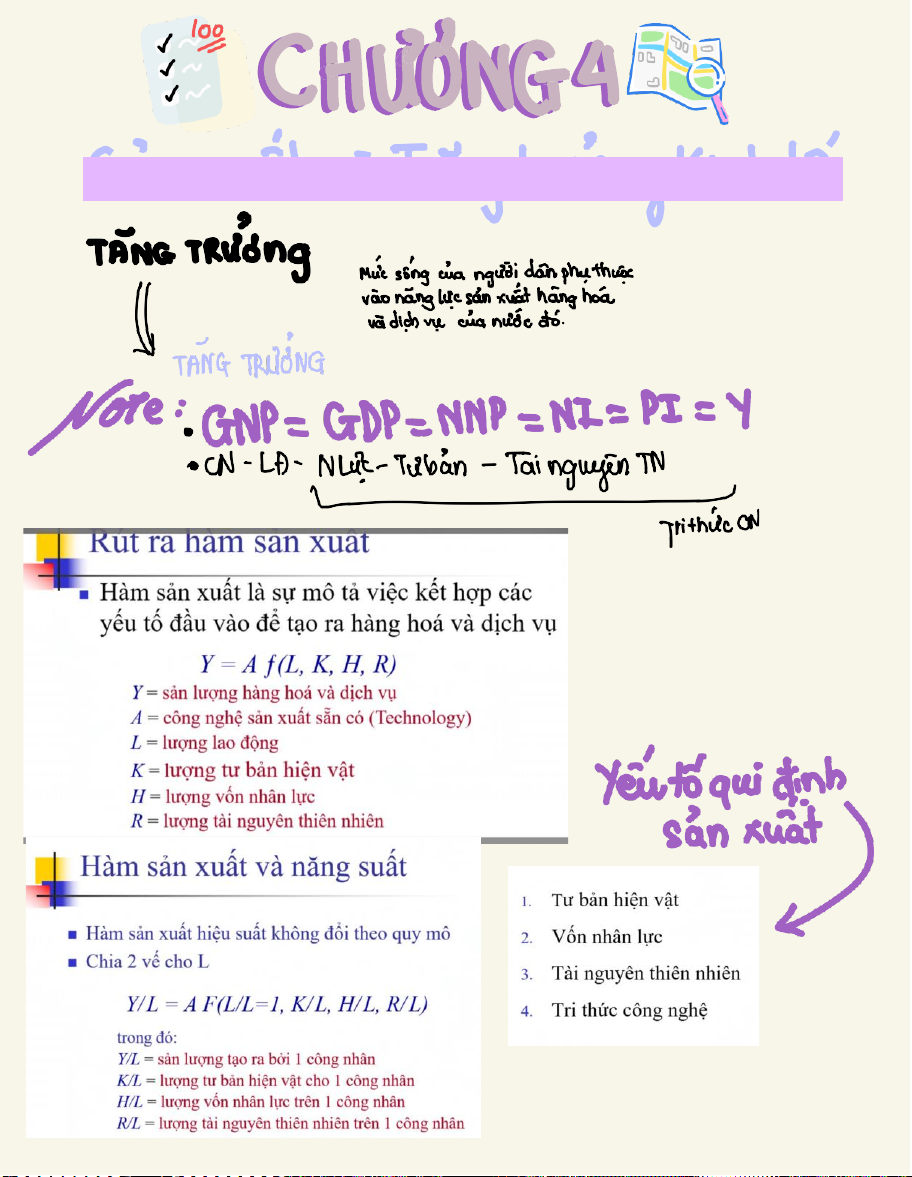 100
CHƯƠNG 4
TĂNG TRƯỞNG
Mức sống của người dân phụ thuộc
vào năng lực sản xuất hàng hoá
và dịch vụ của nước đó.
TĂNG TRƯỞNG
Note:
• GNP = GDP = NNP = NI = PI = Y
• CN - LĐ - NLực - Tư bản - Tài nguyên TN
Tri thức CN
Rút ra hàm sản xuất
Hàm sản xuất là sự mô tả việc kết hợp các
yếu tố đầu vào để tạo ra hàng hoá và dịch vụ
Y = A f(L, K, H, R)
Y = sản lượng hàng hoá và dịch vụ
A = công nghệ sản xuất sẵn có (Technology)
L = lượng lao động
K = lượng tư bản hiện vật
H = lượng vốn nhân lực
R = lượng tài nguyên thiên nhiên
Yếu tố qui định
sản xuất
Hàm sản xuất và năng suất
Hàm sản xuất hiệu suất không đổi theo quy mô
Chia 2 vế cho L
Y/L = A F(L/L=1, K/L, H/L, R/L)
trong đó:
Y/L = sản lượng tạo ra bởi 1 công nhân
K/L = lượng tư bản hiện vật cho 1 công nhân
H/L = lượng vốn nhân lực trên 1 công nhân
R/L = lượng tài nguyên thiên nhiên trên 1 công nhân
1. Tư bản hiện vật
2. Vốn nhân lực
3. Tài nguyên thiên nhiên
4. Tri thức công nghệ